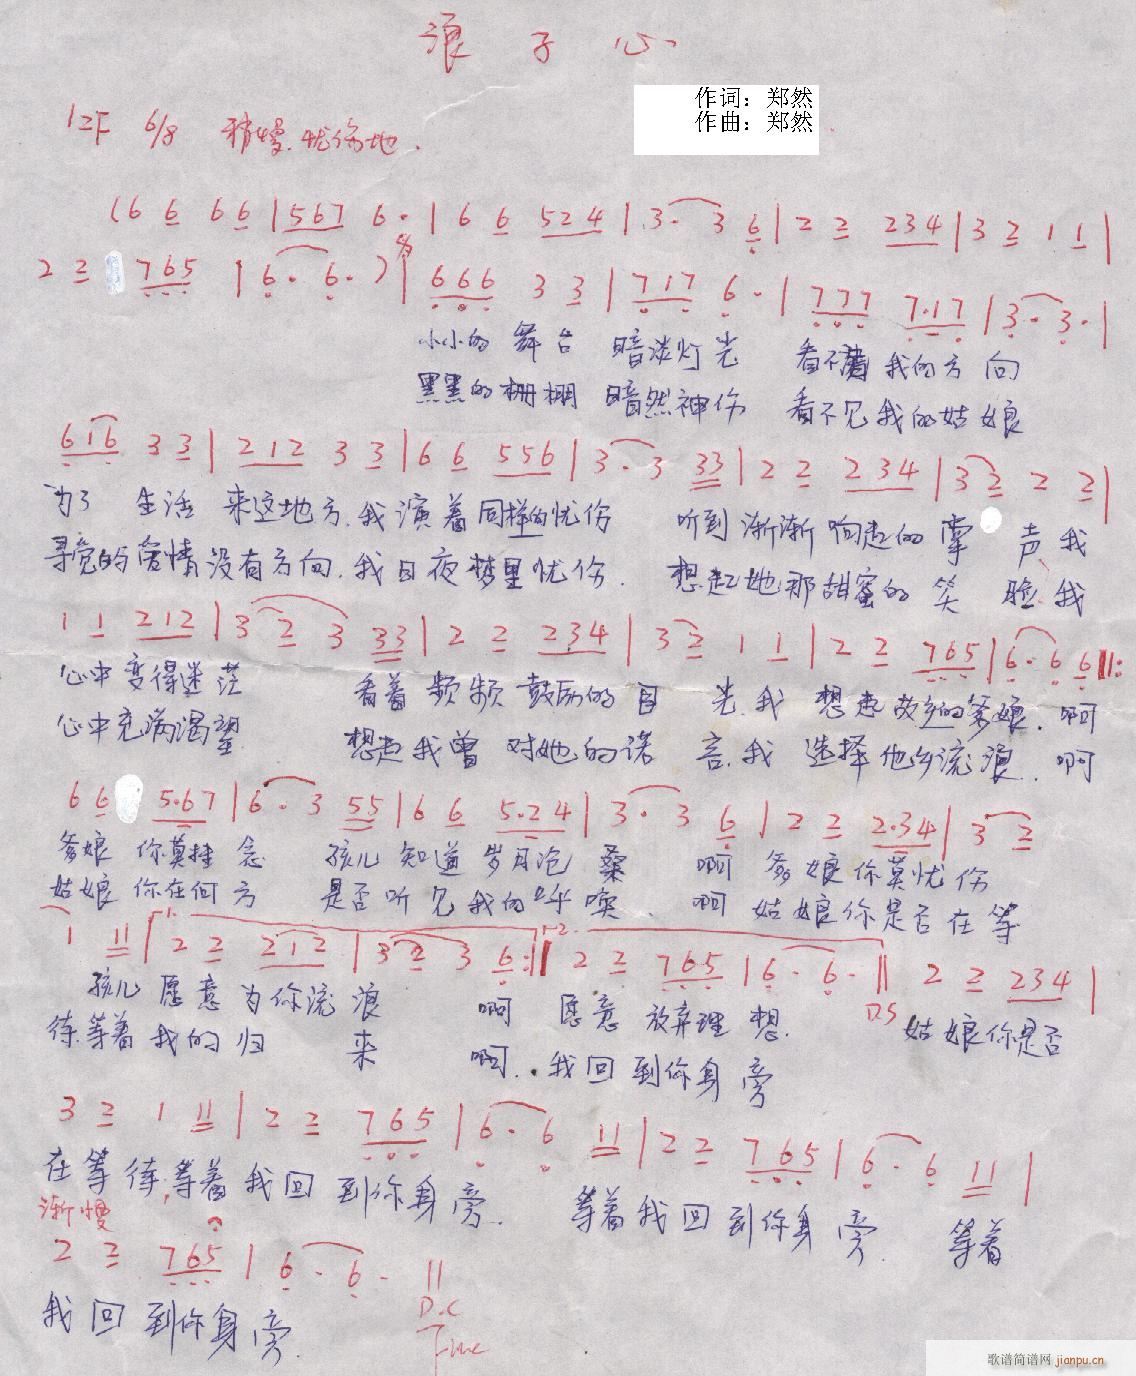 浪子心
作词：郑然
作曲：郑然
1=F 6/8 稍慢.忧伤地.
(6 6 6 6 | 5 6 7 6 · | 6 6 5 2 4 | 3 · 3 6 | 2 2 2 3 4 | 3 2 1 1 |
2 2 7 6 5 | 6 · 6 · ) | 6 6 6 3 3 | 7 1 7 6 · | 7 7 7 7 · 1 7 | 3 · 3 · |
小小的 舞台 暗淡灯光 看不清 我的方向
黑黑的栅栅 暗然神伤 看不见我的姑娘
6 1 6 3 3 | 2 1 2 3 3 | 6 6 5 5 6 | 3 · 3 3 3 | 2 2 2 3 4 | 3 2 2 2 |
为了 生活 来这地方.我演着同样的忧伤 听到渐渐响起的掌声我
寻觅的爱情没有方向.我日夜梦里忧伤. 想起她那甜蜜的笑脸我
1 1 2 1 2 | 3 2 3 3 3 | 2 2 2 3 4 | 3 2 1 1 | 2 2 7 6 5 | 6 · 6 6 ‖:
心中变得迷茫 看着频频鼓励的目光.我想起故乡的爹娘.啊
心中充满渴望 想起我曾对她的诺言.我选择他乡流浪.啊
6 6 5 · 6 7 | 6 · 3 5 5 | 6 6 5 · 2 4 | 3 · 3 6 | 2 2 2 · 3 4 | 3 2
爹娘 你莫挂念 孩儿知道岁月沧桑 啊 爹娘你莫忧伤
姑娘 你在何方 是否听见我的呼唤. 啊 姑娘你是否在等
1 1 1 | 1. 2 2 2 1 2 | 3 2 3 6 :‖ 2. 2 2 7 6 5 | 6 · 6 · ‖ 2 2 2 3 4 |
D.S
孩儿愿意为你流浪 啊 愿意放弃理想. 姑娘你是否
待.等着我的归来 啊.我回到你身旁
3 2 1 1 1 | 2 2 7 6 5 | 6 · 6 1 1 | 2 2 7 6 5 | 6 · 6 1 1 |
在等待,等着我回到你身旁. 等着我回到你身旁 等着
渐慢
2 2 7 6 5 | 6 · 6 · ‖
D.C
Fine
我回到你身旁.
歌谱简谱网 jianpu.cn